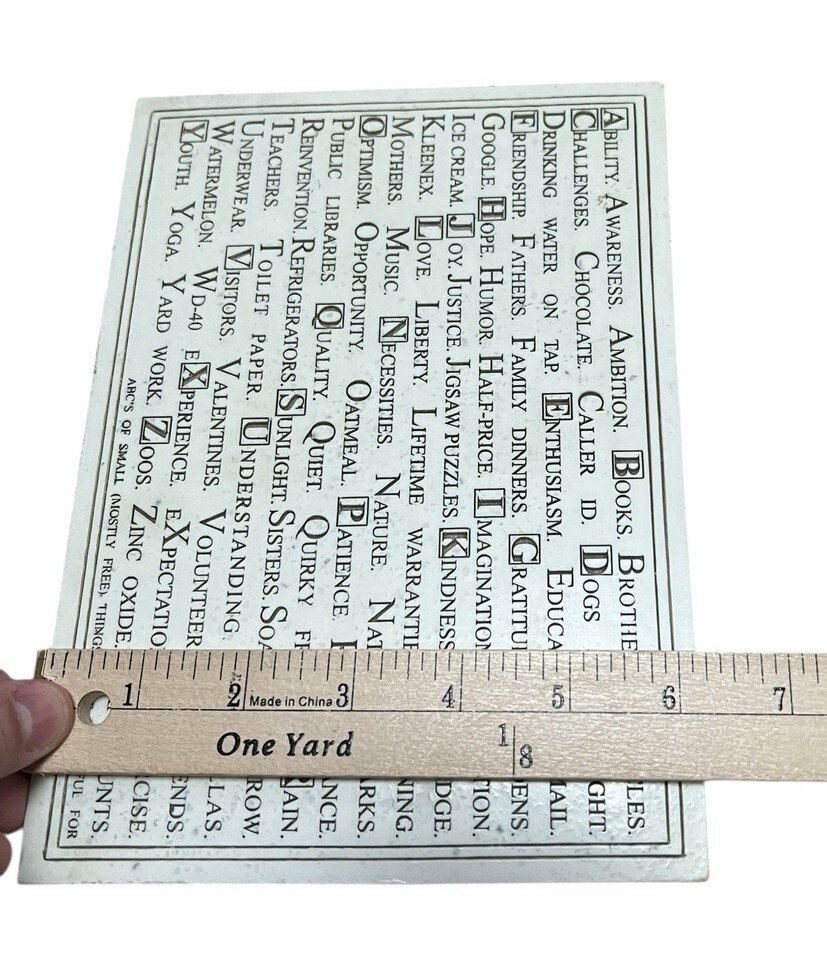 ABILITY. AWARENESS. AMBITION. BOOKS. BROTHE LES.
CHALLENGES. CHOCOLATE. CALLER ID. DOGS GHT.
DRINKING WATER ON TAP. ENTHUSIASM. EDUCA MAIL.
FRIENDSHIP. FATHERS. FAMILY DINNERS. GRATITU ENS.
GOOGLE. HOPE. HUMOR. HALF-PRICE. IMAGINATION TION.
ICE CREAM. JOY. JUSTICE. JIGSAW PUZZLES. KINDNESS DGE.
KLEENEX. LOVE. LIBERTY. LIFETIME WARRANTIE NING.
MOTHERS. MUSIC. NECESSITIES. NATURE. NAT ARKS.
OPTIMISM. OPPORTUNITY. OATMEAL. PATIENCE. ANCE.
PUBLIC LIBRARIES. QUALITY. QUIET. QUIRKY FR AIN.
REINVENTION. REFRIGERATORS. SUNLIGHT. SISTERS. SOA ROW.
TEACHERS. TOILET PAPER. UNDERSTANDING. LAS.
UNDERWEAR. VISITORS. VALENTINES. VOLUNTEER ENDS.
WATERMELON. WD-40 EXPERIENCE. EXPECTATIO CISE.
YOUTH. YOGA. YARD WORK. ZOOS. ZINC OXIDE. UNTS.
ABC'S OF SMALL (MOSTLY FREE) THINGS FUL FOR
1 2 Made in China 3 4 5 6 7
One Yard 1/8